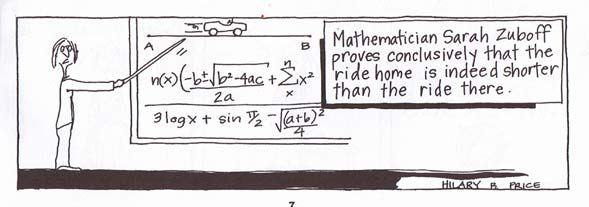 A B
n(x) (-b±√b²-4ac + n∑x x²
2a
3 log x + sin π/2 - √(a+b)²
4
Mathematician Sarah Zuboff
proves conclusively that the
ride home is indeed shorter
than the ride there.
HILARY B. PRICE
7